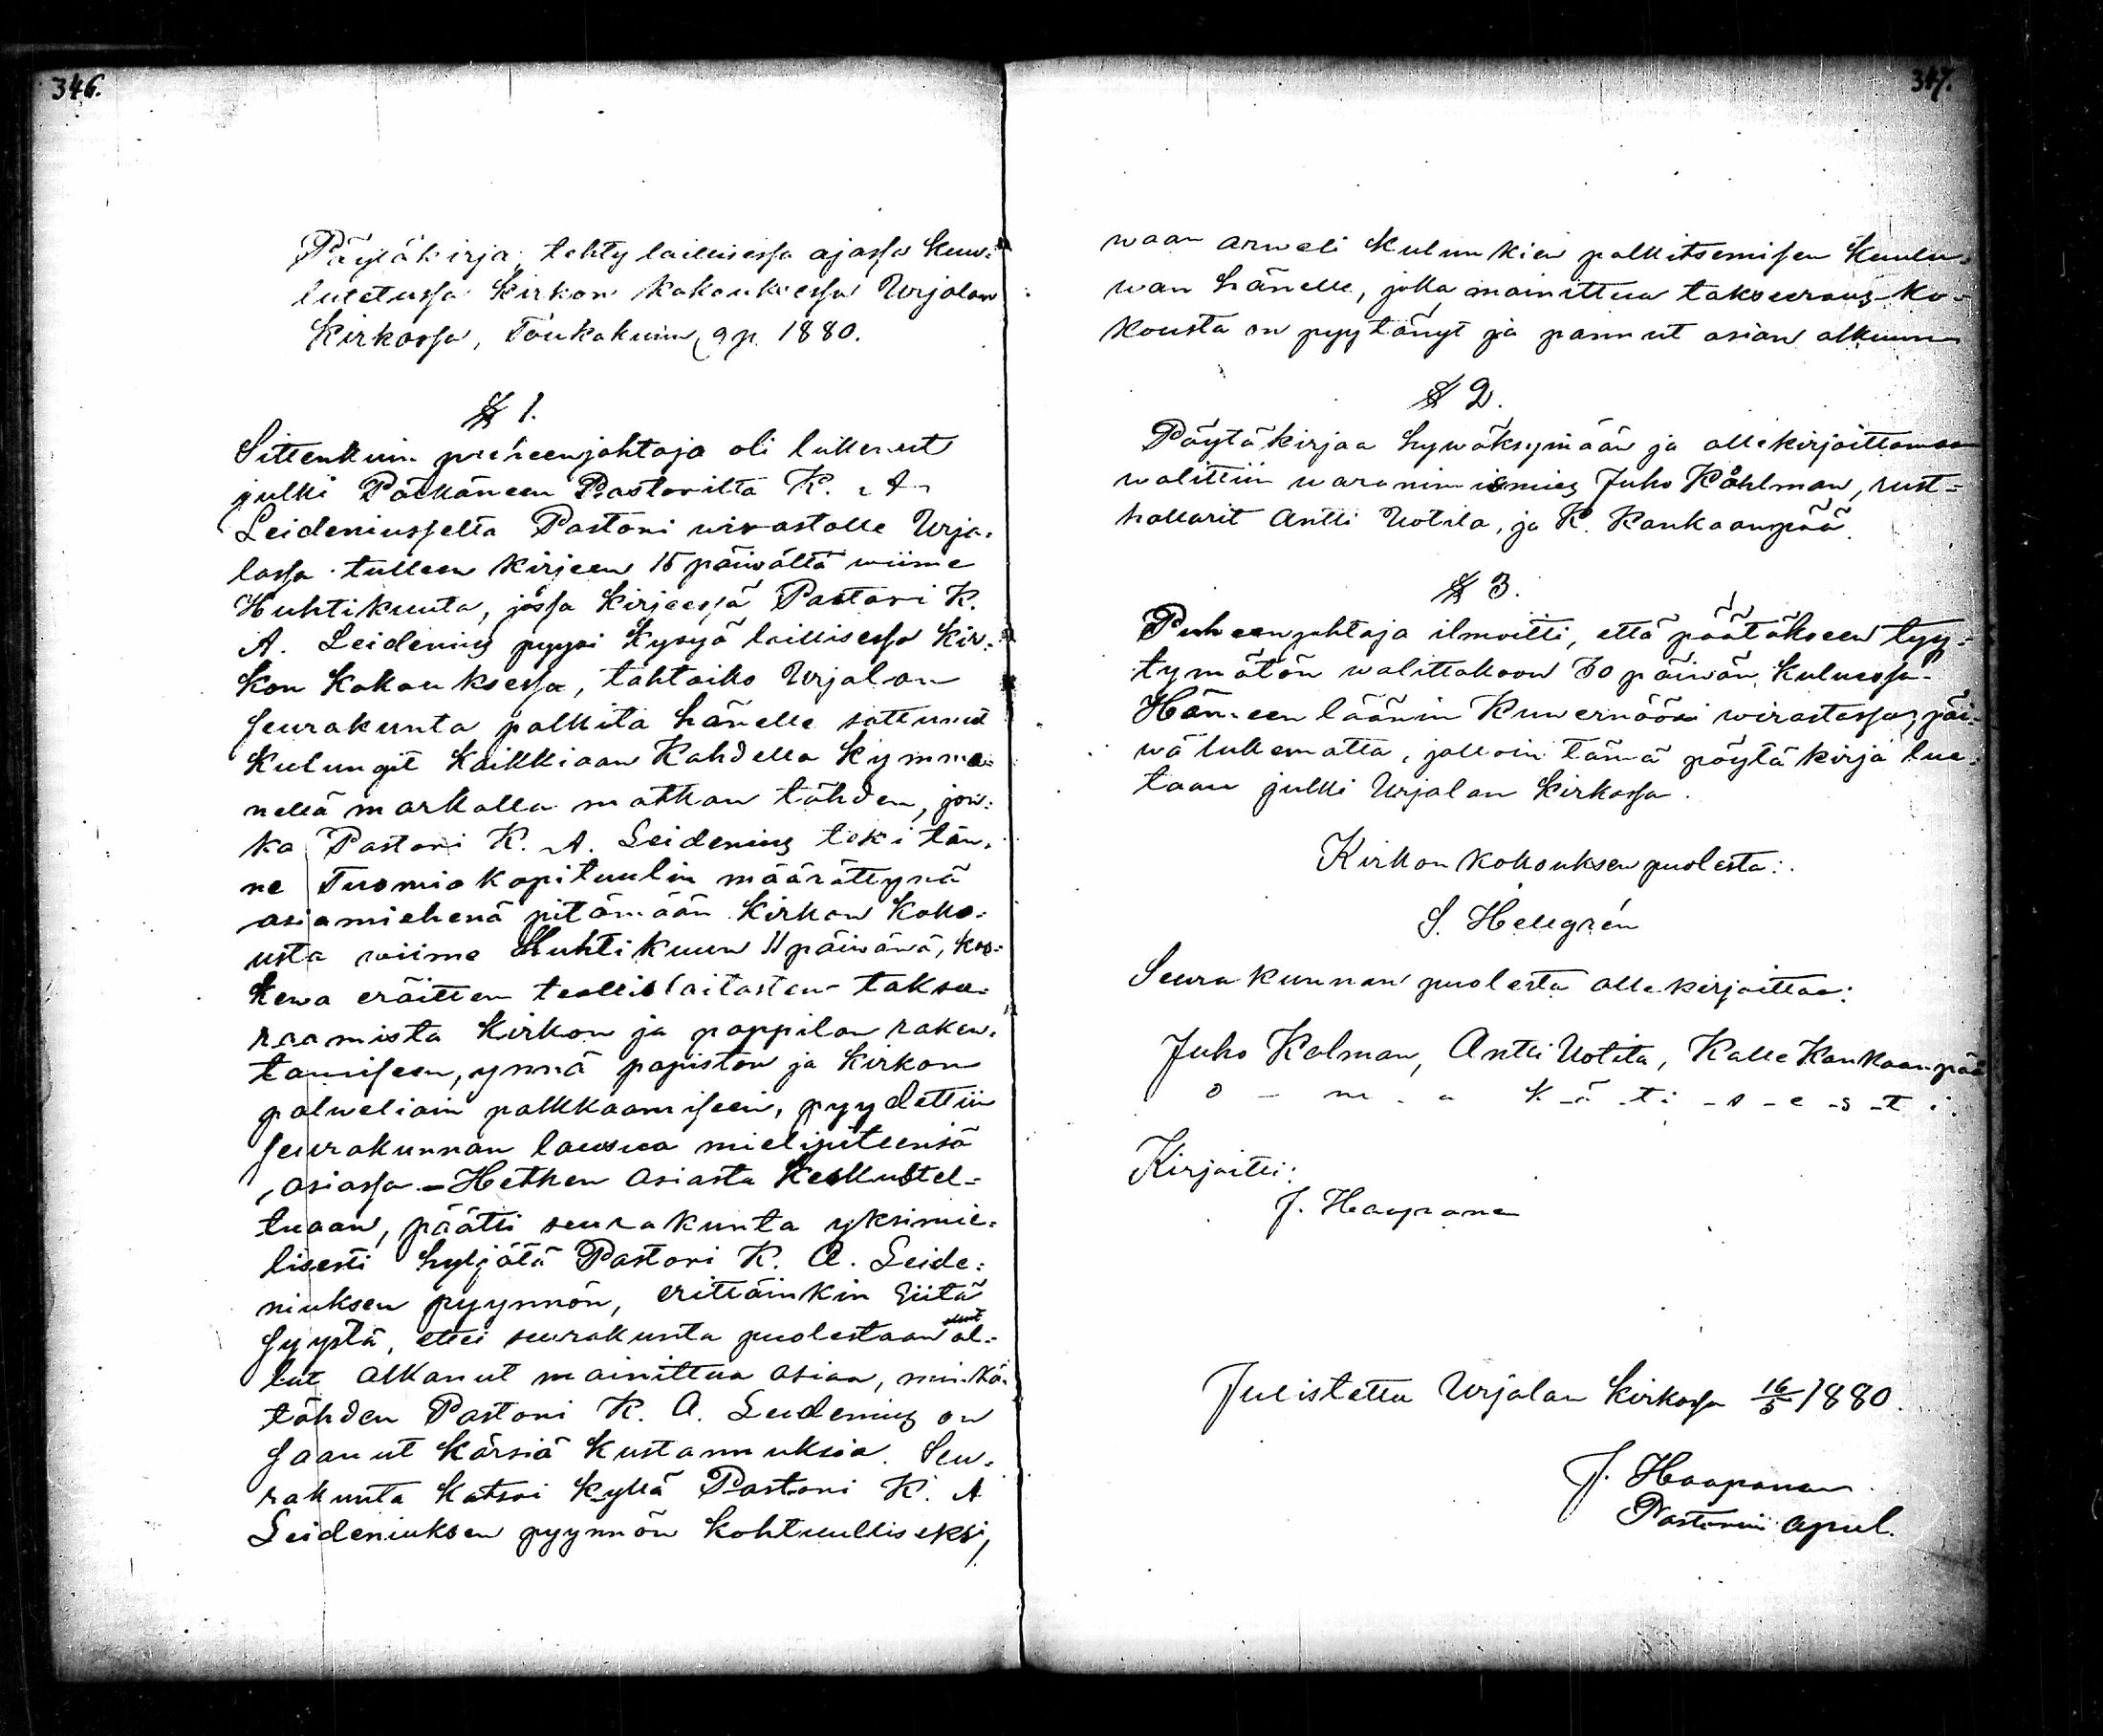 346.
Pöytäkirja, tehty laillisessa ajassa kuu-
lutetussa kirkon kokouksessa Urjalan
kirkossa, Toukokuun 9 p. 1880.
§ 1.
Sittenkuin puheenjohtaja oli lukenut
julki Pälkäneen Pastorilta K. A.
Leideniusselta Pastori virastolle Urja-
lassa tulleen kirjeen 15 päiwältä wiime
Huhtikuuta, jossa kirjeessä Pastori K.
A. Leidenius pyysi kysyä laillisessa kir-
kon kokouksessa, tahtoiko Urjalan
seurakunta palkita hänelle sattuneet
kulungit kaikkiaan kahdella kymme-
nellä markalla matkan tähden, jon-
ka Pastori K. A. Leidenius teki tän-
ne Tuomiokapituulin määrättynä
asiamiehenä pitämään kirkon koko-
usta wiime Huhtikuun 11 päiwänä, kos-
kewa eräitten teollislaitosten taksee-
raamista kirkon ja pappilan raken-
tamiseen, ynnä papiston ja kirkon
palweliain palkkaamiseen, pyydettiin
seurakunnan lausua mielipiteensä
asiassa. – Hetken asiasta keskustel-
tuaan, päätti seurakunta yksimie-
lisesti hyljätä Pastori K. A. Leide-
niuksen pyynnön, erittäinkin siitä
syystä, ettei seurakunta puolestaan ol-
lut alkanut mainittua asiaa, minkä-
tähden Pastori K. A. Leidenius on
saanut kärsiä kustannuksia. Seu-
rakunta katsoi kyllä Pastori K. A
Leideniuksen pyynnön kohtuulliseksi,
347.
waan arweli kulunkien palkitsemisen kuulu-
wan hänelle, jolla mainittua takseeraus-ko-
kousta on pyytänyt ja pannut asian alkuun
§ 2.
Pöytäkirjaa hywäksymään ja allekirjoittamaan
walittiin waranimismies Juho Kåhlman, rust-
hollarit Antti Uotila, ja K. Kankaanpää.
§ 3.
Puheenjohtaja ilmoitti, että päätökseen tyy-
tymätön walittakoon 30 päiwän kuluessa
Hämeen läänin Kuwernööri wirastossa, päi-
wä lukematta, jolloin tämä pöytäkirja lue-
taan julki Urjalan kirkossa.
Kirkon kokouksen puolesta:
S. Hellgrén
Seurakunnan puolesta allekirjoittaa:
Juho Kolman, Antti Uotila, Kalle Kankaanpää
o - m - a k - ä - t i - s - e - s - t i.
Kirjoitti:
J. Haapanen
Julistettu Urjalan kirkossa 16/5 1880.
J. Haapanen
Pastorin apul.